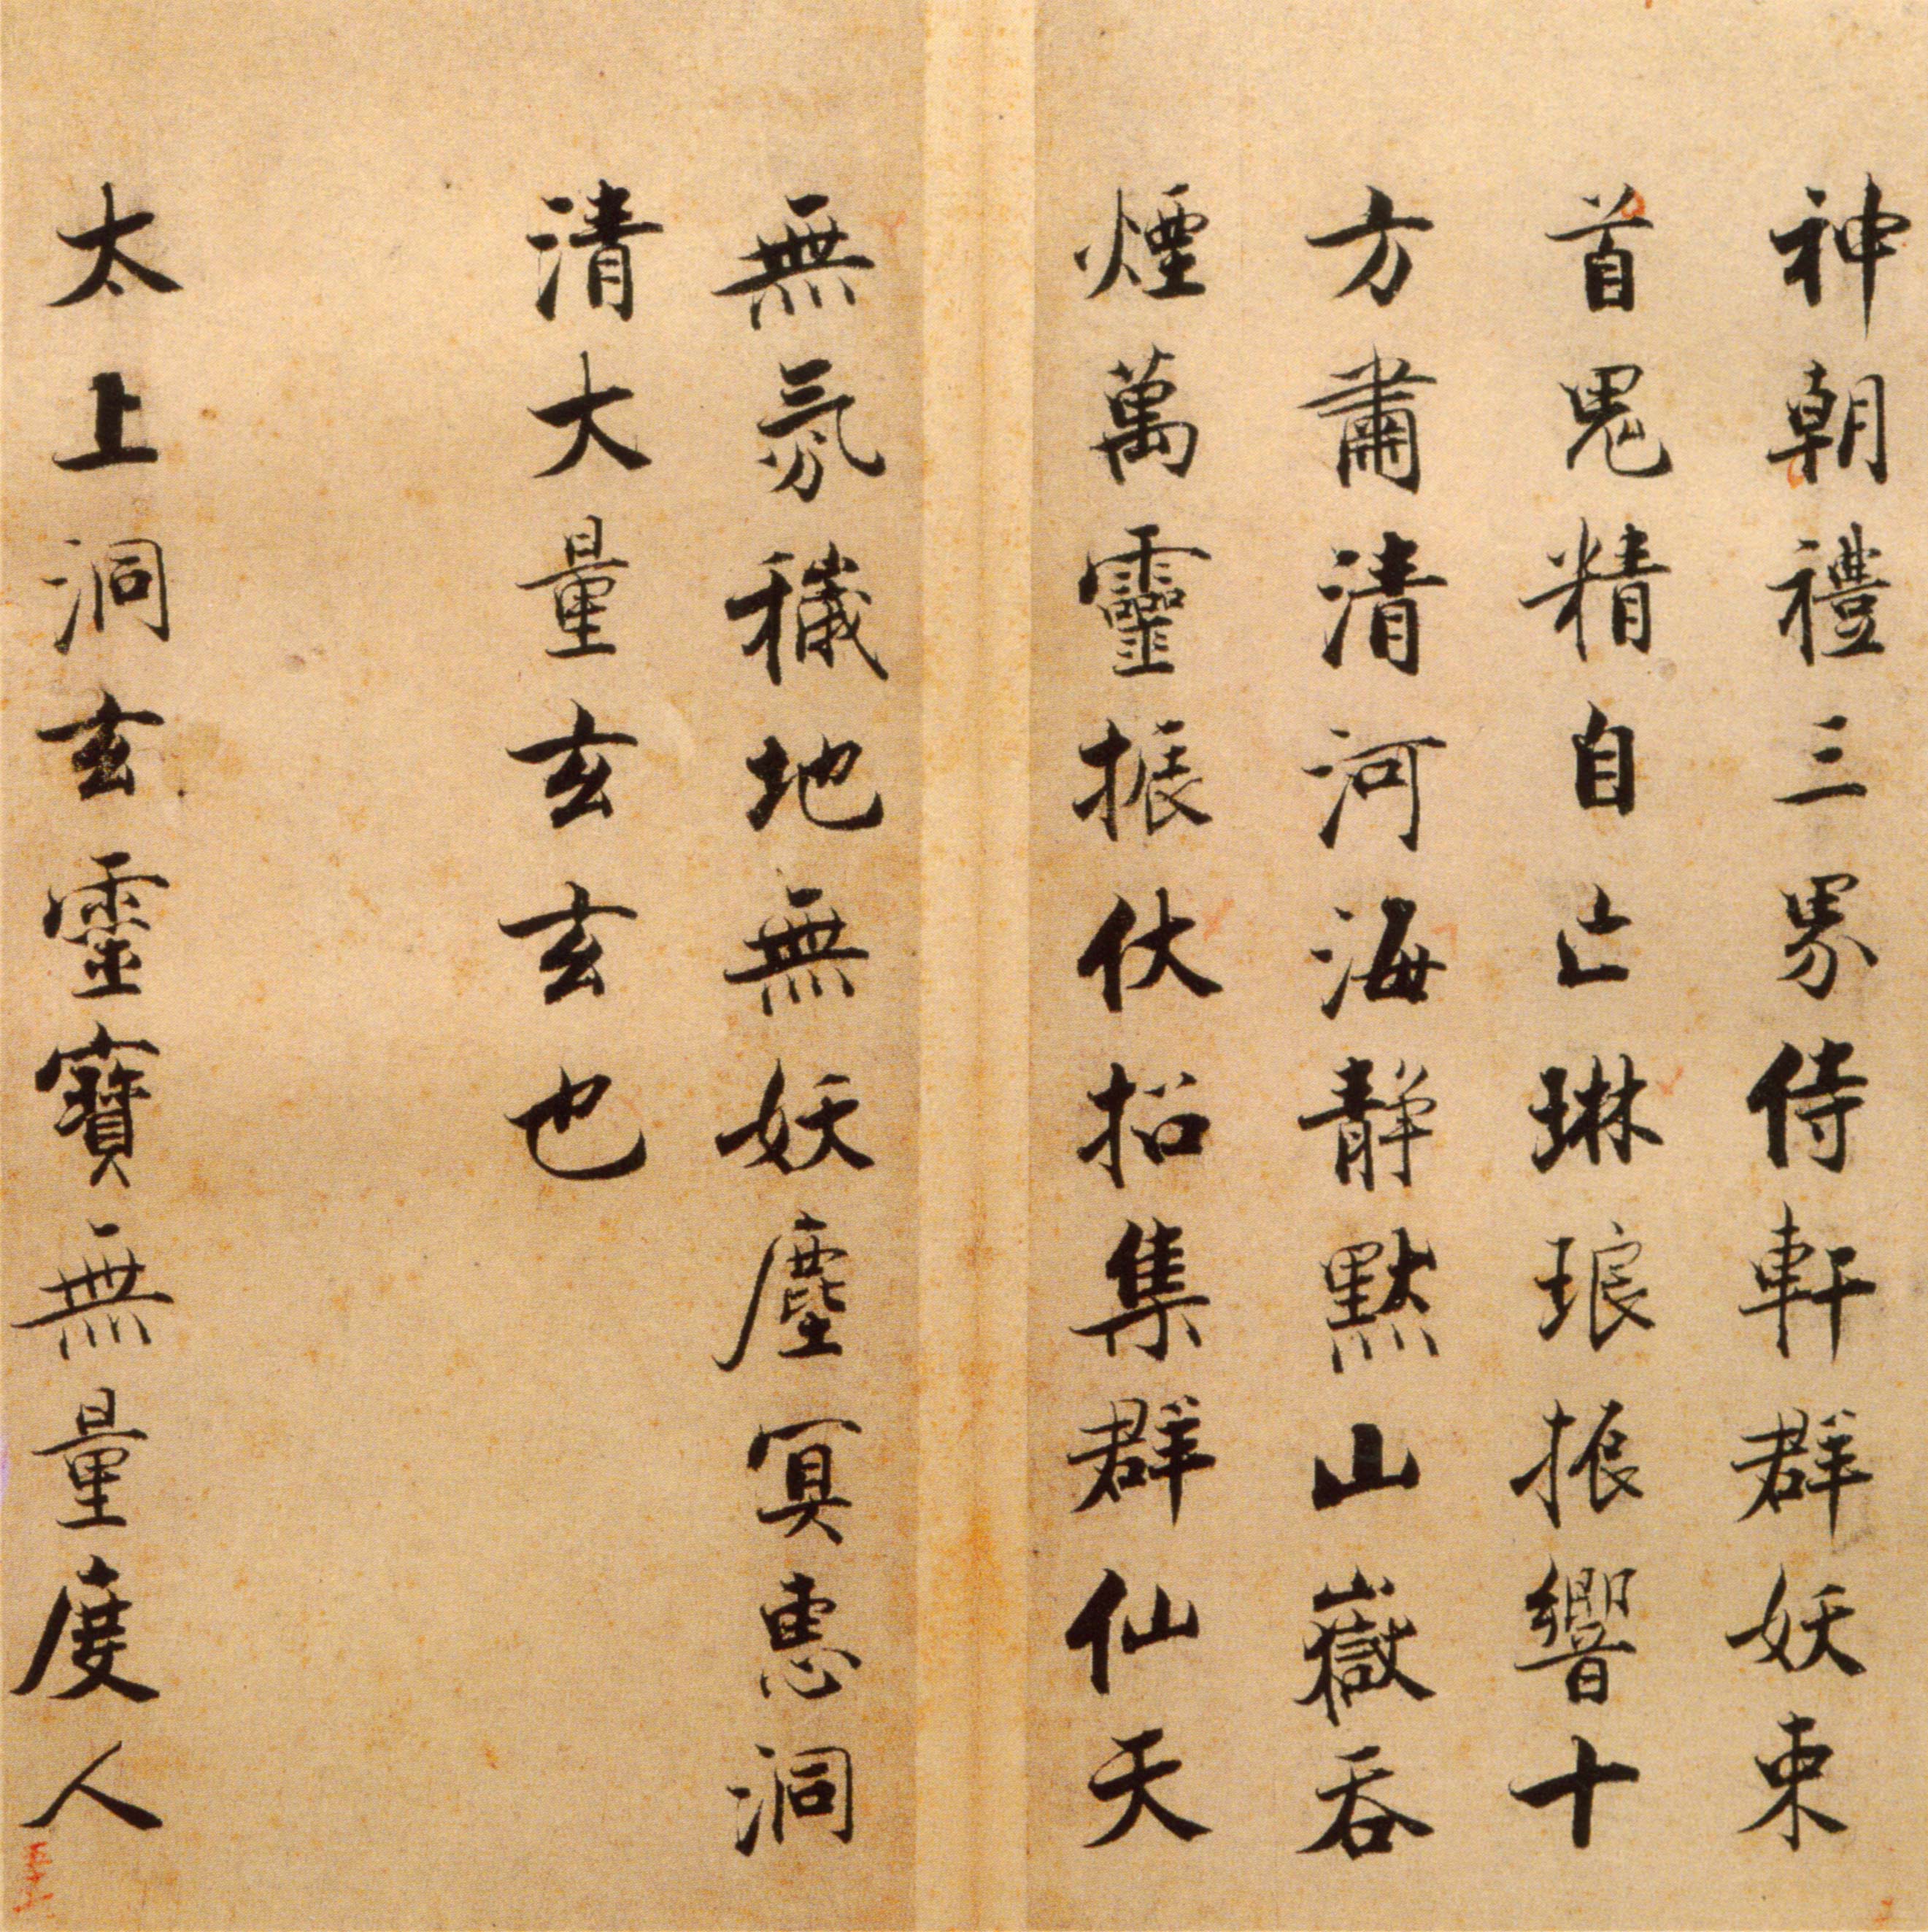 神朝禮三界侍軒群妖束
首鬼精自亡琳琅振響十
方肅清河海靜默山嶽吞
煙萬靈振伏招集群仙天
無氛穢地無妖塵冥惠洞
清大量玄玄也
太上洞玄靈寶無量度人